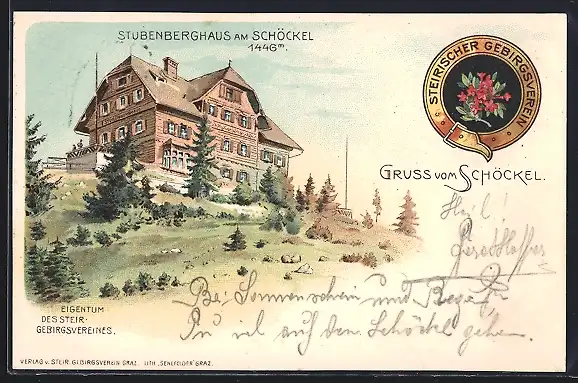 STUBENBERGHAUS AM SCHÖCKEL
1446m.
STEIRISCHER GEBIRGSVEREIN
GRUSS VOM SCHÖCKEL.
Heil!
Bei Sonnenschein und Regen
viel auf den Schöckel gehen.
EIGENTUM
DES STEIR.
GEBIRGSVEREINES.
VERLAG V. STEIR. GEBIRGSVEREIN GRAZ. LITH. „SENEFELDER" GRAZ.